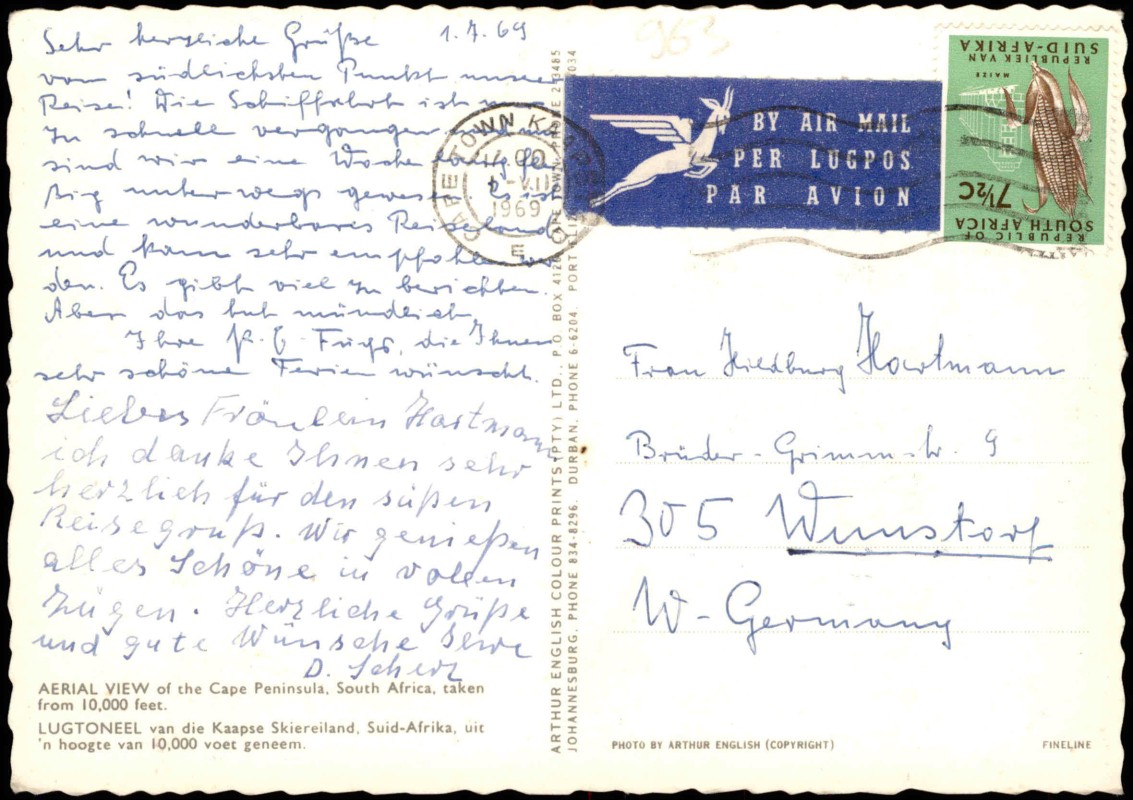 Sehr herzliche Grüße 1.7.69
vom südlichsten Punkt unserer
Reise! Die Schiffahrt ist
zu schnell vergangen, und nun
sind wir eine Woche lang
unterwegs gewesen. Es ist
eine wunderbares Reiseland
und kann sehr empfohlen wer
den. Es gibt viel zu berichten.
Aber das tut mündlich
Ihre Fugs, die Ihnen
sehr schöne Ferien wünscht.
Liebes Fräulein Hartmann
ich danke Ihnen sehr
herzlich für den süßen
Reisegruß. Wir genießen
alles Schöne in vollen
Zügen. Herzliche Grüße
und gute Wünsche Ihre
D. Scherz
AERIAL VIEW of the Cape Peninsula, South Africa, taken
from 10,000 feet.
LUGTONEEL van die Kaapse Skiereiland, Suid-Afrika, uit
'n hoogte van 10,000 voet geneem.
ARTHUR ENGLISH COLOUR PRINTS (PTY) LTD., P.O. BOX 412 CAPE TOWN, PHONE 2-3485
JOHANNESBURG, PHONE 834-8296. DURBAN, PHONE 6-6204. PORT
963
CAPE TOWN
1969
E
BY AIR MAIL
PER LUGPOS
PAR AVION
REPUBLIC OF
SOUTH AFRICA
7½C
MAIZE
REPUBLIEK VAN
SUID-AFRIKA
Frau Hiedburg Hartmann
Brüder-Grimm-str. 9
305 Wunstorf
W-Germany
PHOTO BY ARTHUR ENGLISH (COPYRIGHT)
FINELINE